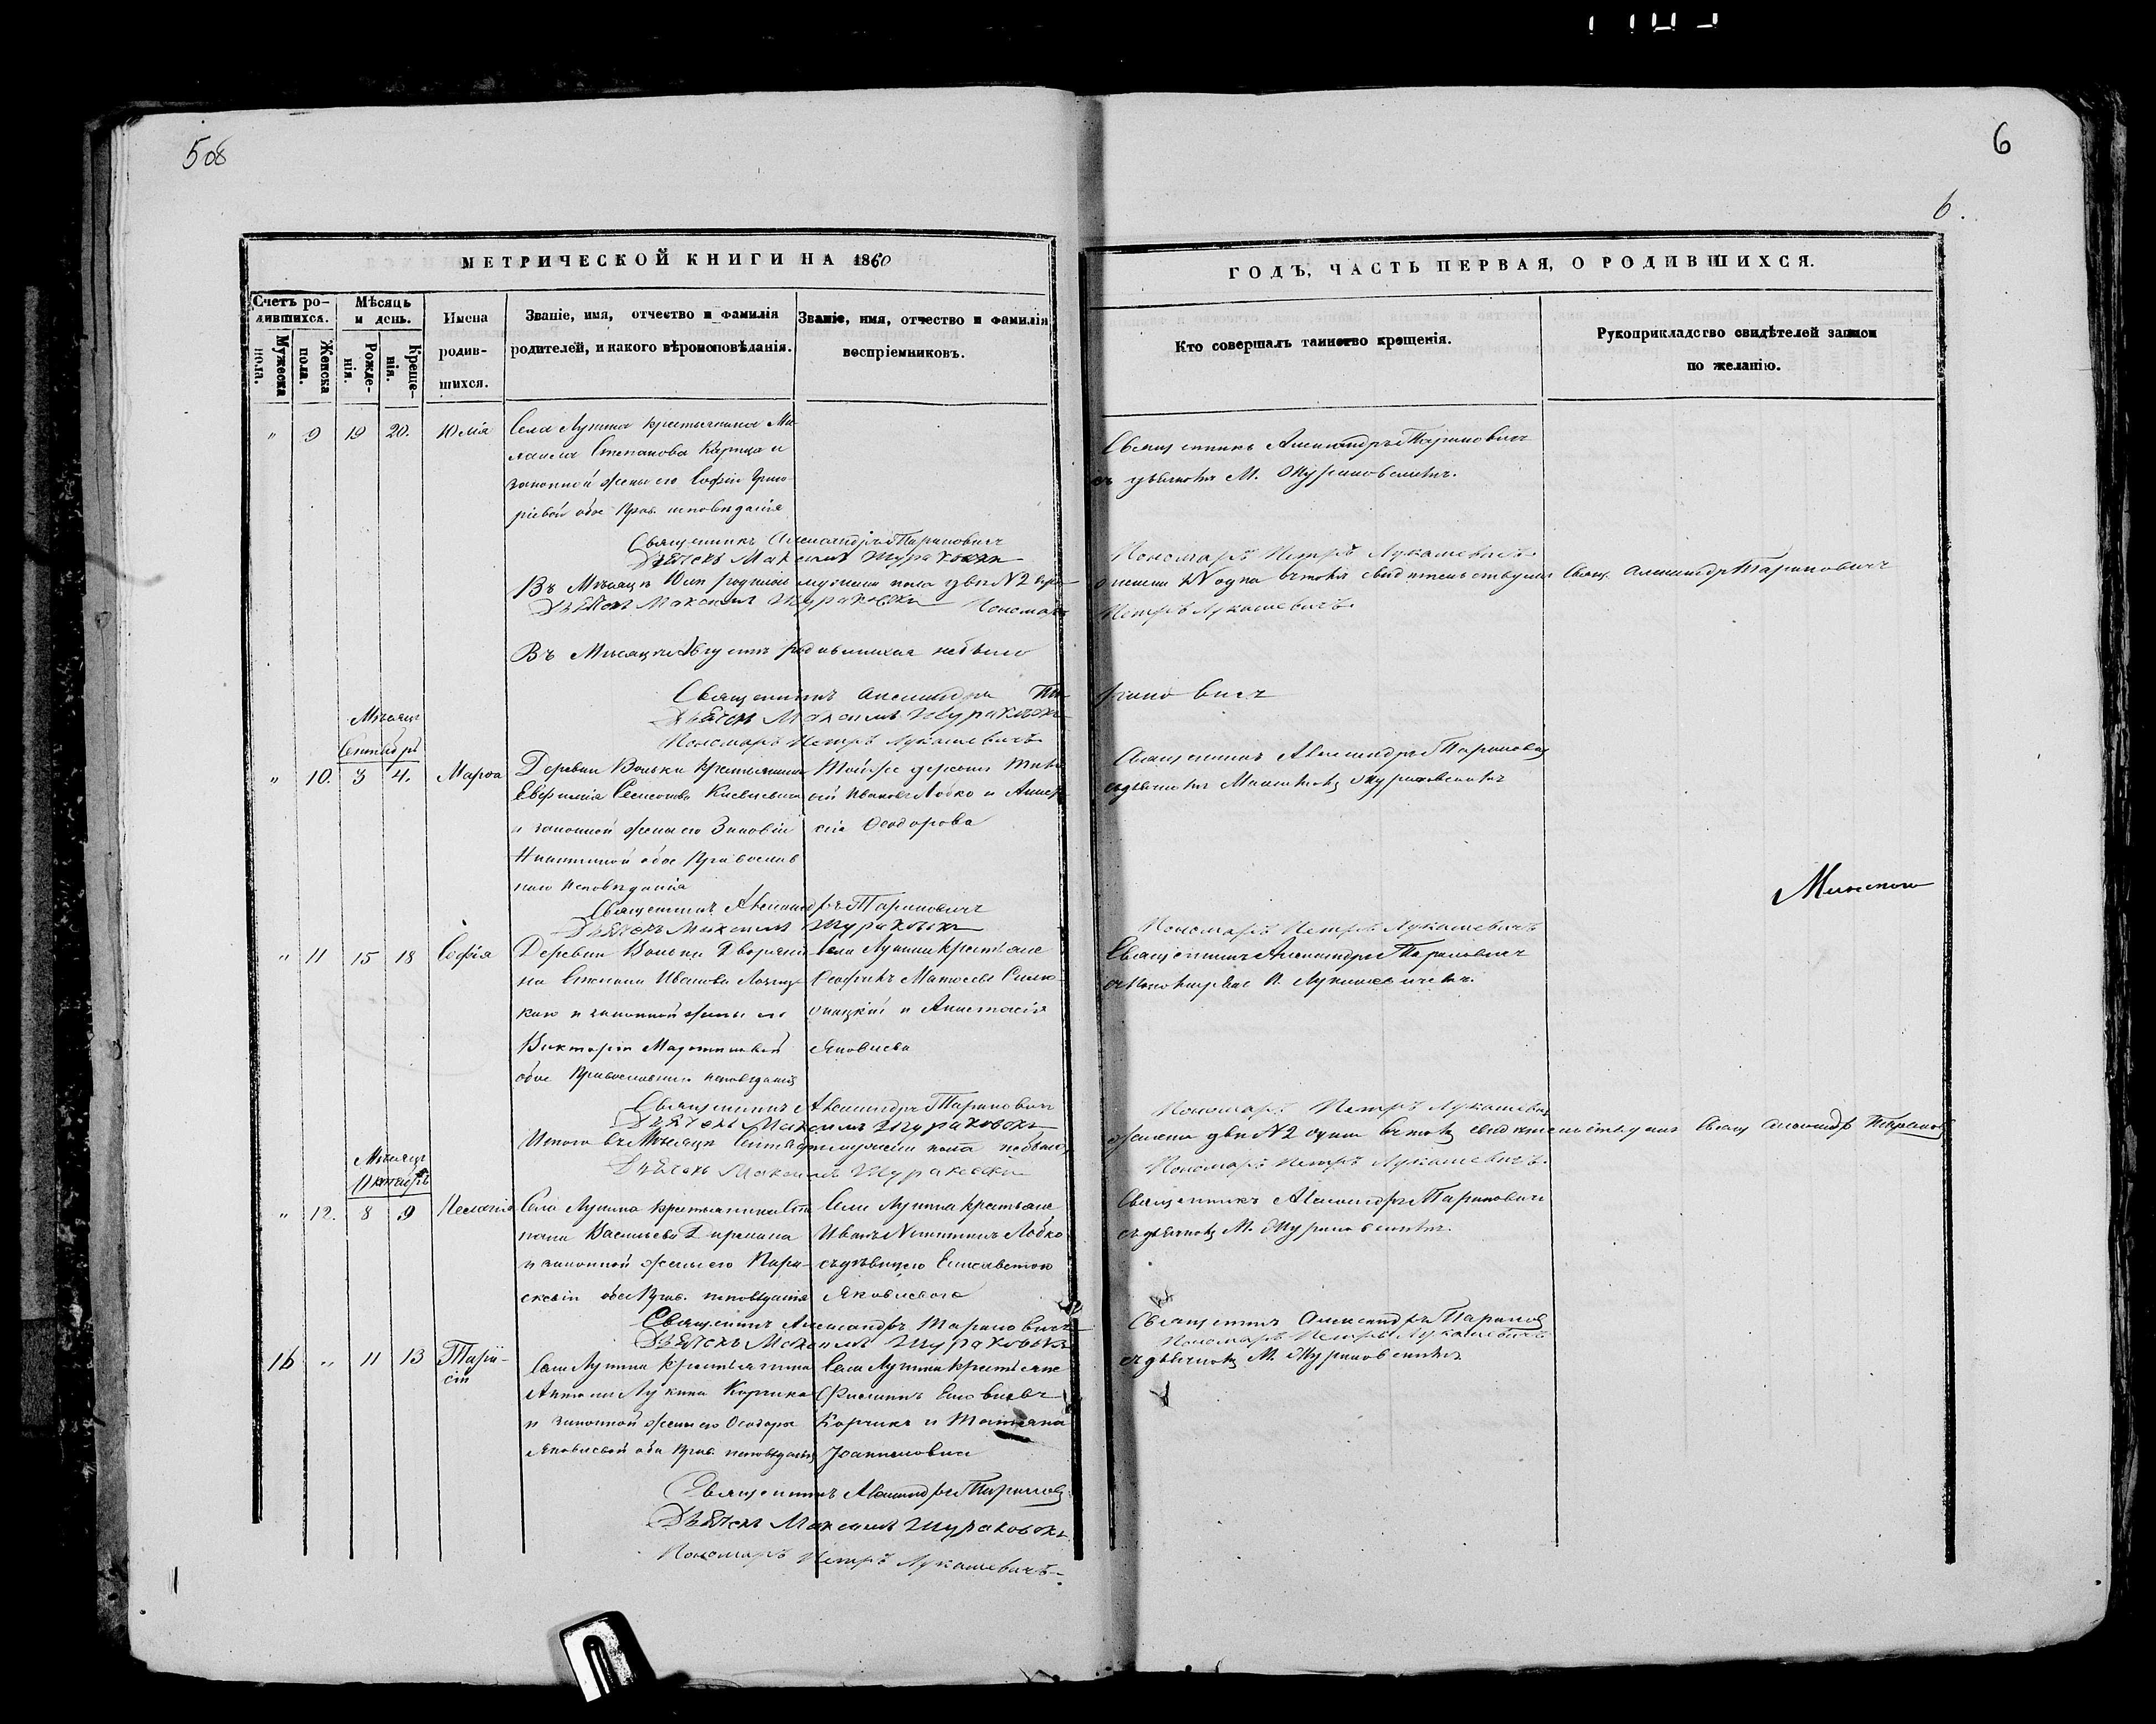 508
6
6.
МЕТРИЧЕСКОЙ КНИГИ НА 1860
ГОДЪ, ЧАСТЬ ПЕРВАЯ, О РОДИВШИХСЯ.
Счетъ ро-
дившихся.
Мужеска
пола.
Женска
пола.
Мѣсяцъ
и день.
Рожде-
нія.
Креще-
нія.
Имена
родив-
шихся.
Званіе, имя, отчество и фамилія
родителей, и какого вѣроисповѣданія.
Званіе, имя, отчество и фамилія
воспріемниковъ.
Кто совершалъ таинство крещенія.
Рукоприкладство свидѣтелей записи
по желанію.
" 9 19 20. Юлія
Села Лунина крестьянина Ми-
хаила Степанова Карпца и
законной жены его Софіи Григо
ріевой обое Прав. исповѣданія
Священникъ Александръ Тарановичъ
съ дьячкомъ М. Жураковскимъ.
Священникъ Александръ Тарановичъ
Дьячекъ Максимъ Жураковскій
Пономарь Петръ Лукашевичъ
Въ Мѣсяцѣ Юлѣ родилось мужеска пола два №2
женска №1 одна въ томъ свидѣтельствуемъ Свящ. Александръ Тарановичъ
Дьячекъ Максимъ Жураковскій Пономарь
Петръ Лукашевичъ
Въ Мѣсяцѣ Августѣ родившихся небыло
Священникъ Александръ Та-
рановичъ
Дьячекъ Максимъ Жураковскій
Пономарь Петръ Лукашевичъ
Мѣсяцъ
Сентябрь
" 10. 3 4. Марѳа
Деревни Вольки крестьянина
и законной жены его Зиновіи
Никитиной обое Православ
наго исповѣданія
Тойже деревни
Иванов Лобко и
Ѳеодорова
Священникъ Александръ Таранович
съ дьячкомъ Жураковскимъ
Минского
Священникъ Александръ Тарановичъ
Дьячекъ Максимъ Жураковскій
Пономарь Петръ Лукашевичъ
" 11 15 18 Софія
Деревни Вольки Дворяни
на Степана Иванова
каго и законной жены его
Викторіи Мартиновой
обое Православнаго исповѣданія
Села Лунина крестьяне
и Анастасія
Яковлева
Священникъ Александръ Тарановичъ
съ Пономаремъ П. Лукашевичемъ.
Священникъ Александръ Тарановичъ
Дьячекъ Максимъ Жураковскій
Пономарь Петръ Лукашевичъ
Итого въ Мѣсяцѣ Сентябрѣ мужеска пола небыло
женска два №2 въ томъ свидѣтельствуемъ Свящ Александръ Таранов
Дьячекъ Максимъ Жураковскій
Пономарь Петръ Лукашевичъ.
Мѣсяцъ
Октябрь
" 12. 8 9 Пелагія
Села Лунина крестьянина Сте
пана Васильева
и законной жены его Пара-
скевіи обое Прав. исповѣданія
Села Лунина крестьяне
Иванъ Никитинъ Лобко
съ дѣвицею Елисаветою
Яковлевою
Священникъ Александръ Тарановичъ
съ дьячкомъ М. Жураковскимъ.
Священникъ Александръ Тарановичъ
Дьячекъ Максимъ Жураковскій
Пономарь Петръ Лукашевичъ
16 " 11 13 Тара-
сій
Села Лунина Крестьянина
Антона Лукина Корчика
и законной жены его Ѳеодоры
Яковлевой оба Прав. исповѣданія
Села Лунина крестьяне
Филипъ
Корчикъ и Татьяна
Священникъ Александръ Таранов
съ дьячкомъ М. Жураковскимъ
Священникъ Александръ Таранов
Дьячекъ Максимъ Жураковскій
Пономарь Петръ Лукашевичъ